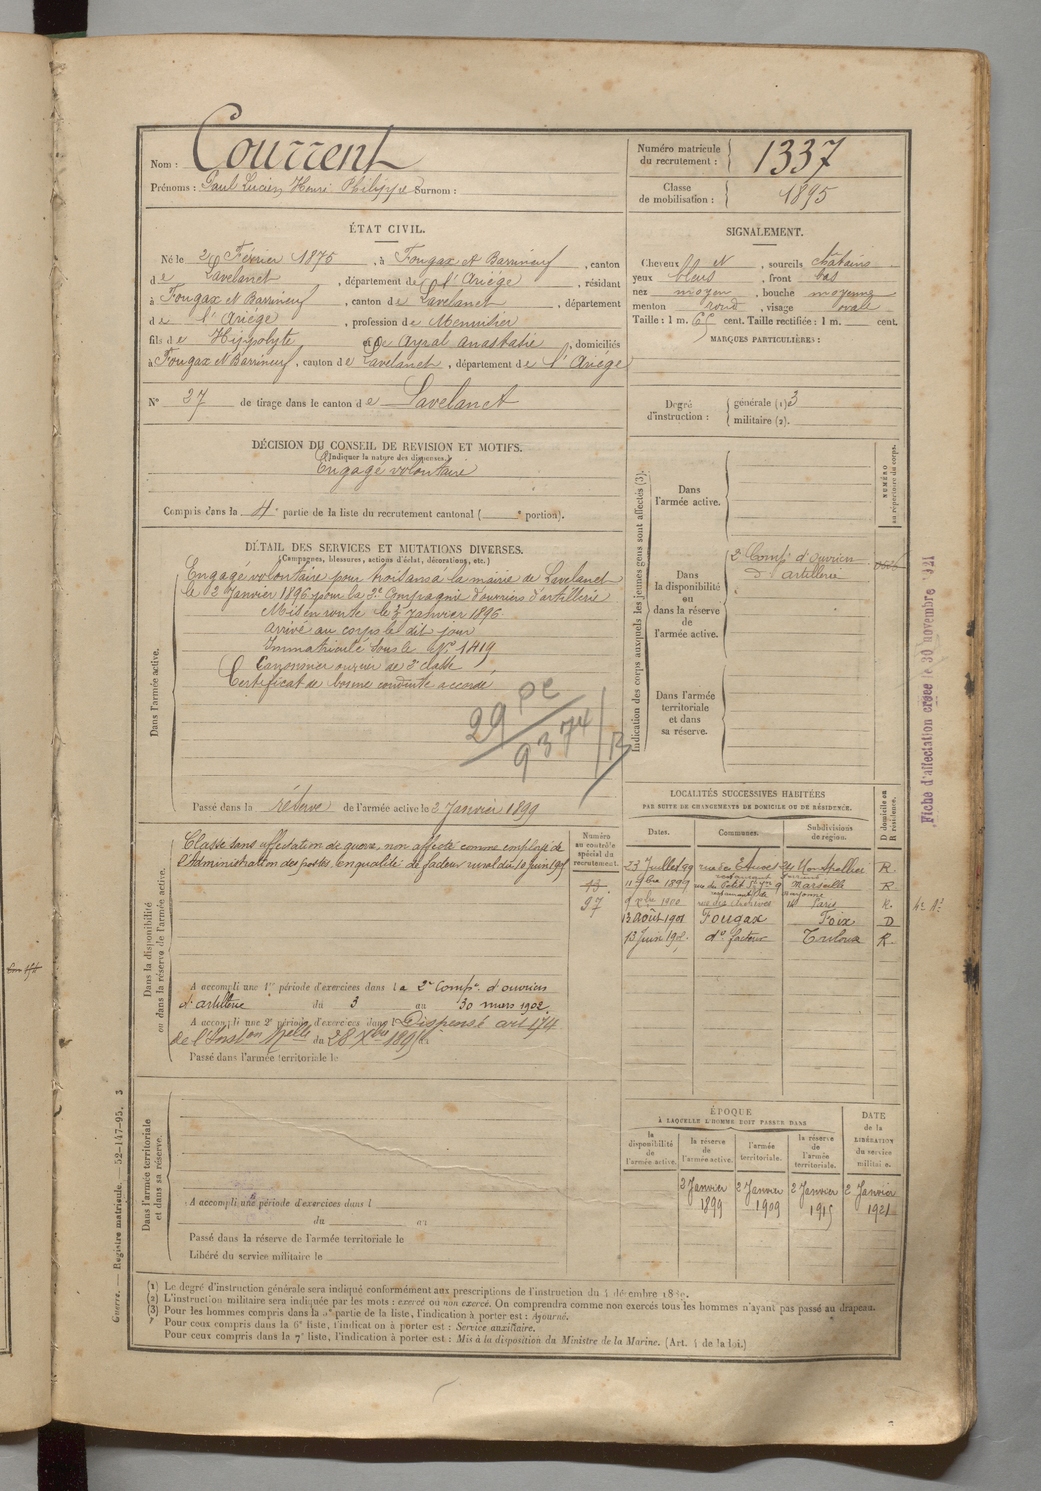 Nom : Courrent
Prénoms : Paul Lucien Henri Philippe Surnom :
Numéro matricule
du recrutement : 1337
Classe
de mobilisation : 1895
ÉTAT CIVIL.
Né le 2 Février 1875, à Fougax et Barrineuf, canton
de Lavelanet, département de l'Ariège, résidant
à Fougax et Barrineuf, canton de Lavelanet, département
de l'Ariège, profession de Menuisier
fils de Hippolyte et de Ayral Anastasie, domiciliés
à Fougax et Barrineuf, canton de Lavelanet, département de l'Ariège
N° 37 de tirage dans le canton de Lavelanet
SIGNALEMENT.
Cheveux et, sourcils châtains
yeux bleus, front bas
nez moyen, bouche moyenne
menton rond, visage ovale
Taille : 1 m. 65 cent. Taille rectifiée : 1 m. cent.
MARQUES PARTICULIÈRES :
Degré
d'instruction :
générale (1) 3
militaire (2).
DÉCISION DU CONSEIL DE REVISION ET MOTIFS.
(Indiquer la nature des dispenses.)
Engagé volontaire
Compris dans la 4e partie de la liste du recrutement cantonal ( e portion).
DÉTAIL DES SERVICES ET MUTATIONS DIVERSES.
(Campagnes, blessures, actions d'éclat, décorations, etc.)
Dans l'armée active.
Engagé volontaire pour trois ans à la mairie de Lavelanet
le 2 Janvier 1896 pour la 2e Compagnie d'ouvriers d'artillerie
Mis en route le 3 Janvier 1896
Arrivé au corps le dit jour
Immatriculé sous le No 1419
Canonnier ouvrier de 2e classe
Certificat de bonne conduite accordé
29
9374
Passé dans la réserve de l'armée active le 2 Janvier 1899
Indication des corps auxquels les jeunes gens sont affectés (3).
NUMÉRO
au répertoire du corps.
Dans
l'armée active.
Dans
la disponibilité
ou
dans la réserve
de
l'armée active.
2e Compie d'ouvriers
d'artillerie
Dans l'armée
territoriale
et dans
sa réserve.
Fiche d'affectation créée le 30 novembre 1921
Dans la disponibilité
ou dans la réserve de l'armée active.
Classé sans affectation de guerre, non affecté comme employé de
l'Administration des postes, en qualité de facteur rural du 10 Juin 1905
Numéro
au contrôle
spécial du
recrutement.
13
97
A accompli une 1re période d'exercices dans la 2e Compie d'ouvriers
d'artillerie du 3 au 30 mars 1902.
A accompli une 2e période d'exercices dans l Dispensé art 174
de l'Inston Melle du 28 Xbre 1895
Passé dans l'armée territoriale le
LOCALITÉS SUCCESSIVES HABITÉES
PAR SUITE DE CHANGEMENTS DE DOMICILE OU DE RÉSIDENCE.
Dates. Communes. Subdivisions de région. D domicile ou R résidence.
23 Juillet 99 Montpellier R.
11 9bre 1899 Marseille R
9 Xbre 1900 Paris R.
13 Août 1901 Fougax Foix D
13 Juin 1905 do facteur Toulouse R.
ÉPOQUE
À LAQUELLE L'HOMME DOIT PASSER DANS
la disponibilité de l'armée active.
la réserve de l'armée active.
l'armée territoriale.
la réserve de l'armée territoriale.
DATE de la LIBÉRATION du service militaire.
2 Janvier 1899
2 Janvier 1909
2 Janvier 1915
2 Janvier 1921
Dans l'armée territoriale
et dans sa réserve.
A accompli une période d'exercices dans l
du au
Passé dans la réserve de l'armée territoriale le
Libéré du service militaire le
(1) Le degré d'instruction générale sera indiqué conformément aux prescriptions de l'instruction du 4 décembre 1889.
(2) L'instruction militaire sera indiquée par les mots : exercé ou non exercé. On comprendra comme non exercés tous les hommes n'ayant pas passé au drapeau.
(3) Pour les hommes compris dans la 5e partie de la liste, l'indication à porter est : Ajourné.
Pour ceux compris dans la 6e liste, l'indication à porter est : Service auxiliaire.
Pour ceux compris dans la 7e liste, l'indication à porter est : Mis à la disposition du Ministre de la Marine. (Art. 4 de la loi.)
Guerre. — Registre matricule. — 52-147-95. 3